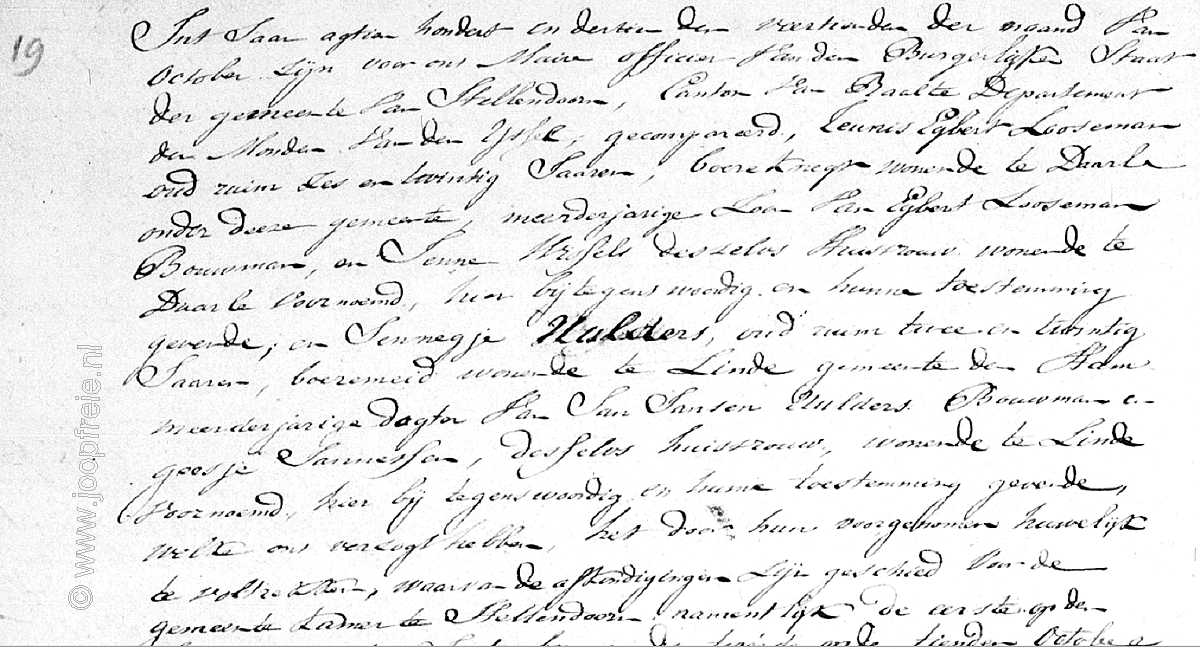 19
Int Jaar agtien hondert en dertien den veertienden der maand Van
October Zijn voor ons Maire officier Van den Burgerlijke Staat
der gemeente Van Hellendoorn, Canton Van Raalte Departement
den Monden Van den Yssel, gecompareerd, Teunis Egbert Looseman
oud ruim Zes en twintig Jaaren, boereknegt wonende te Daarle
onder deeze gemeente, meerderjarige Zoon Van Egbert Looseman
Bouwman, en Jenne Wessels desselvs Huisvrouw wonende te
Daarle Voornoemd, hier bij tegenswoordig en hunne toestemming
gevende, en Jennegje Mulders, oud ruim twee en twintig
Jaaren, boeremeid wonende te Linde gemeente den Ham
meerderjarige dogter Van Jan Jansen Mulders Bouwman en
geesje Jannessen, desselvs huisvrouw, wonende te Linde
Voornoemd, hier bij tegenswoordig en hunne toestemming gevende,
welke ons verzogt hebben, het door hun voorgenomen huwelijk
te voltrekken, waarvan de afkondigingen Zijn geschied Voor de
gemeente Kamer te Hellendoorn namentlijk de eerste op den
de tweede op den tienden October
© www.joopfreie.nl